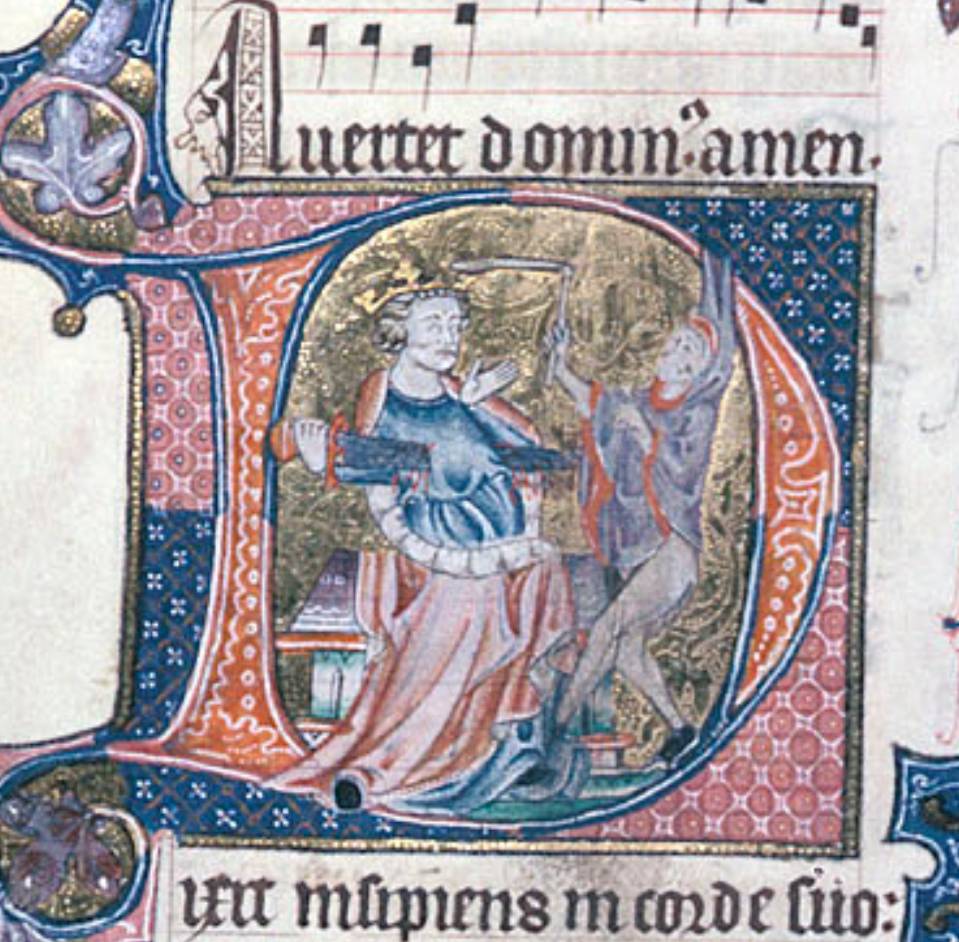 Auertet domin.ᵃ amen.
Dixit insipiens in corde suo: